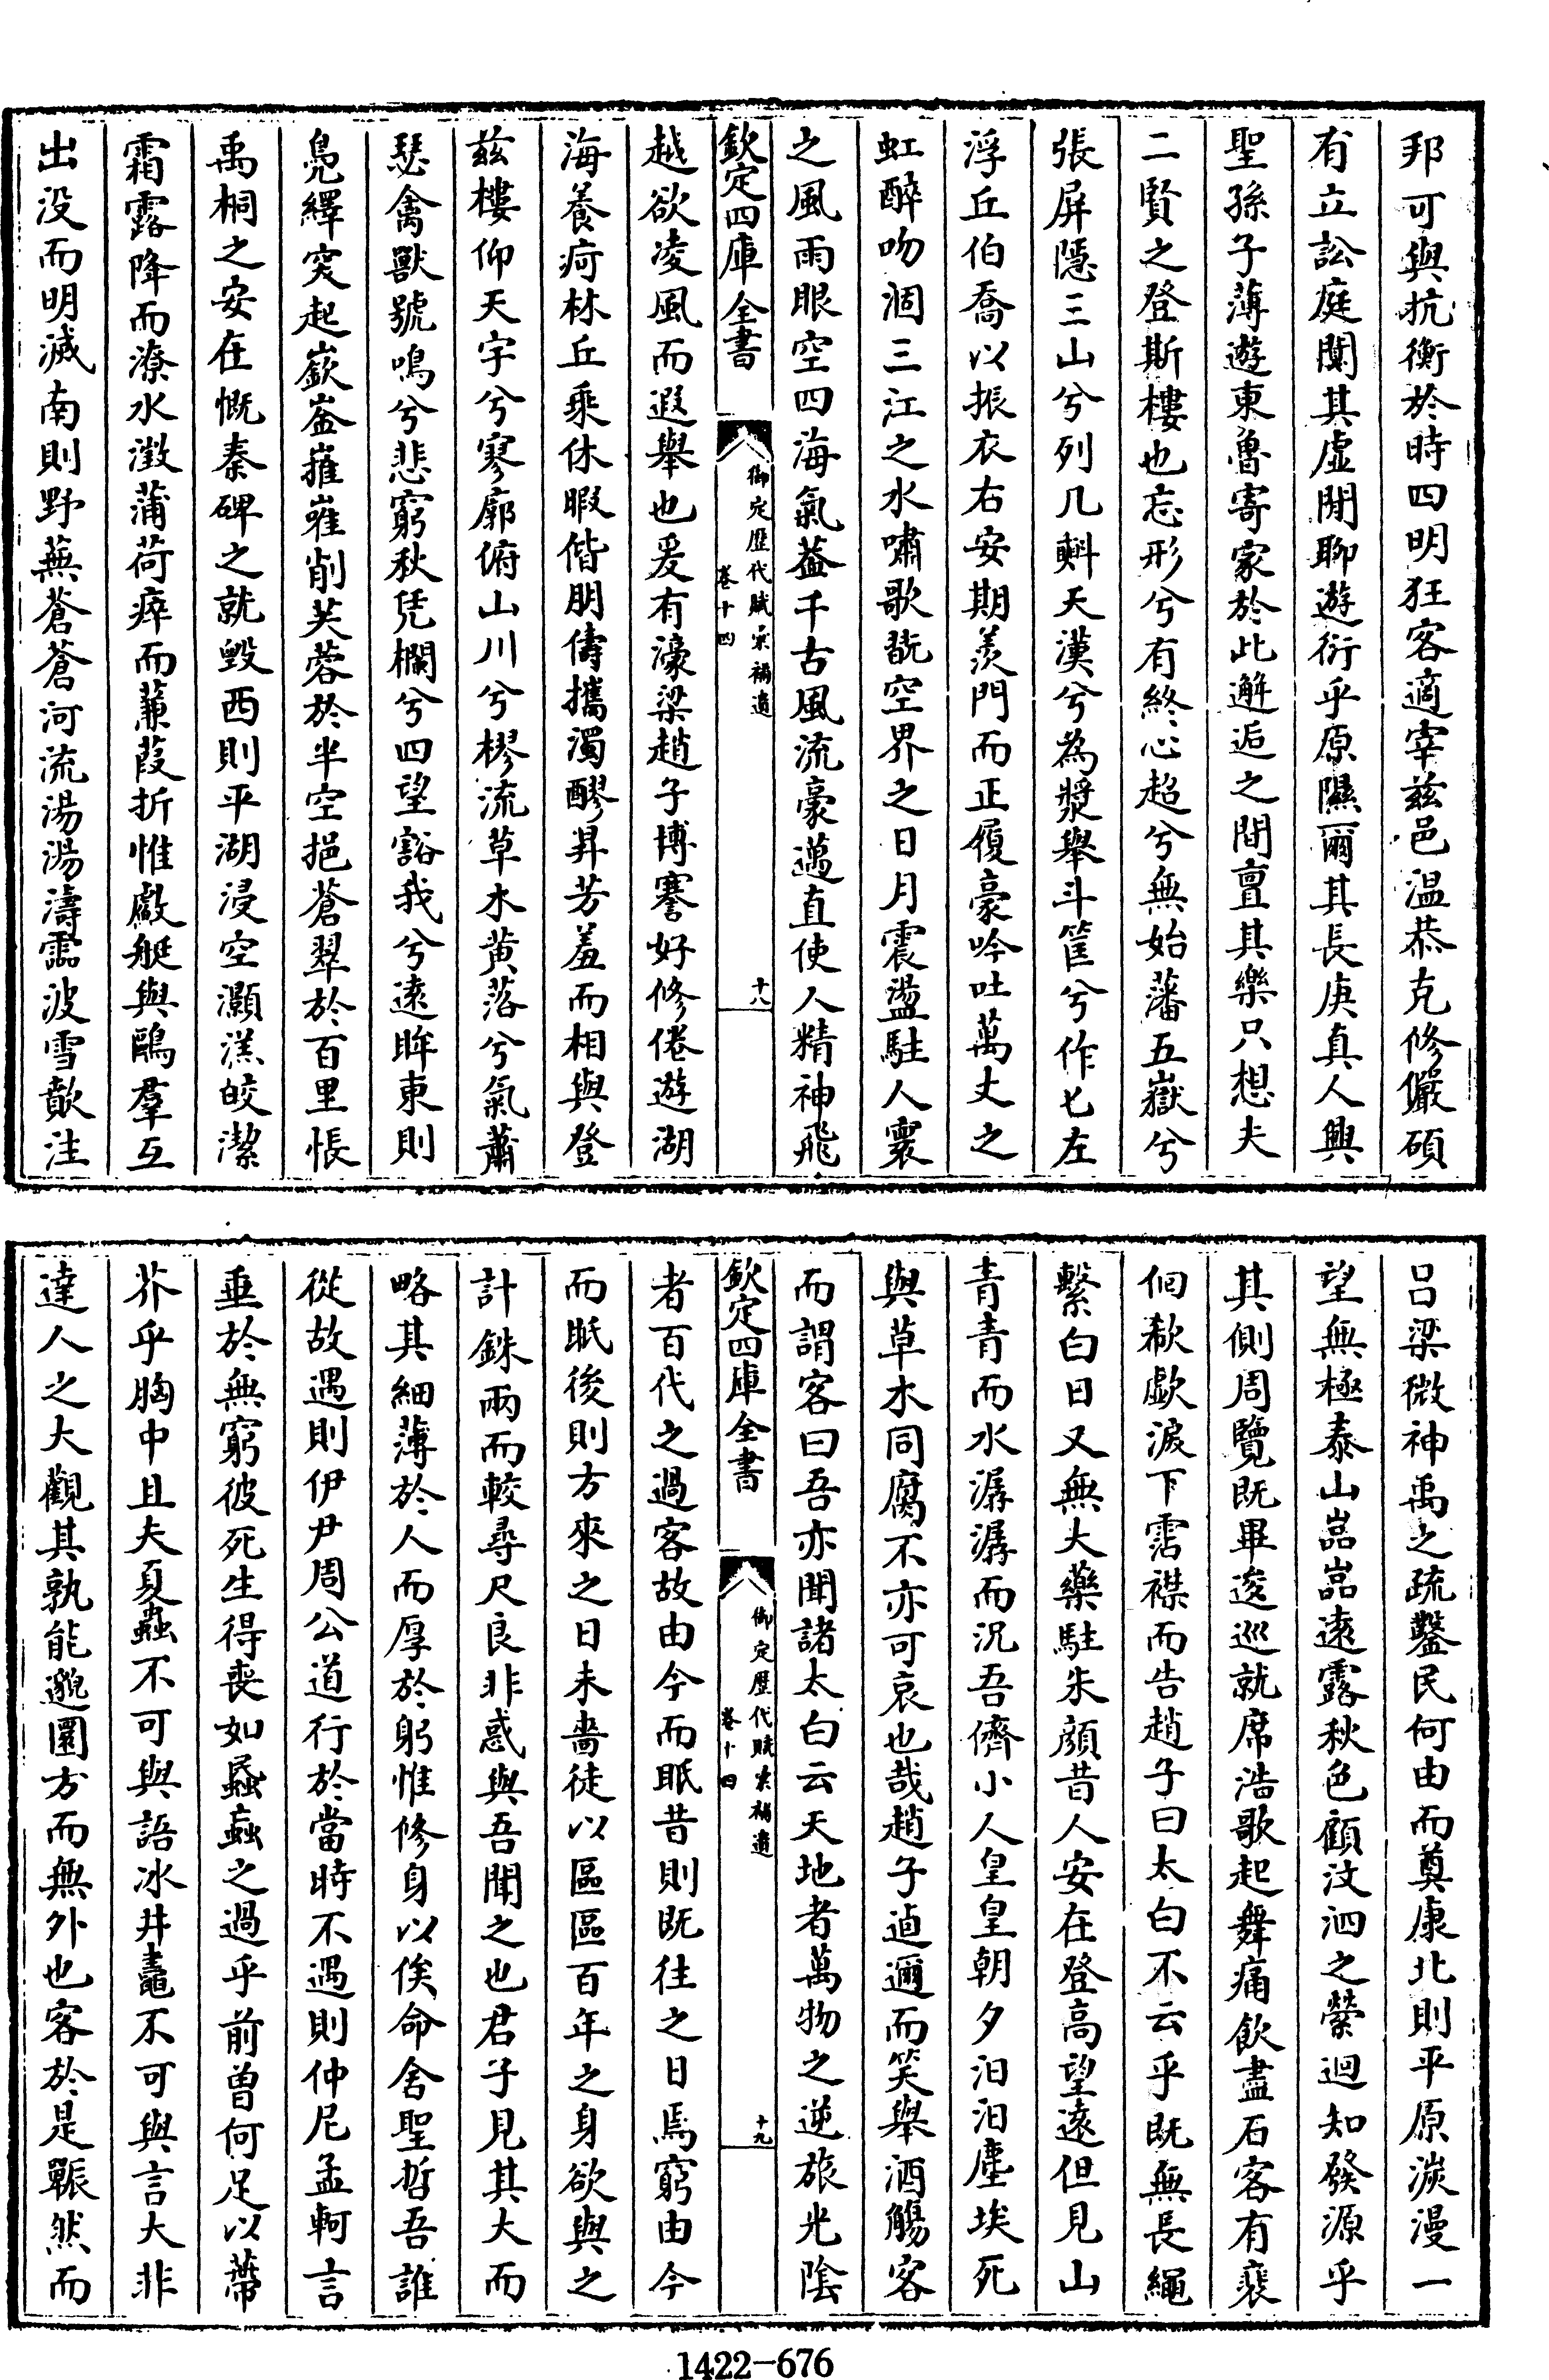 邦可與抗衡於時四明狂客適宰兹邑温恭克修儼碩
有立訟庭闃其虚閒聊遊衍乎原隰爾其長庚真人興
聖孫子薄遊東魯寄家於此邂逅之間亶其樂只想夫
二賢之登斯樓也忘形兮有終心超兮無始藩五嶽兮
張屏隱三山兮列几㪺天漢兮為漿舉斗筐兮作匕左
浮丘伯喬以振衣右安期羨門而正履豪吟吐萬丈之
虹醉吻涸三江之水嘯歌翫空界之日月震盪駐人寰
之風雨眼空四海氣葢千古風流豪邁直使人精神飛
欽定四庫全書
御定歴代賦彙補遺
卷十四
十八
越欲凌風而遐舉也爰有濠梁趙子博謇好修倦遊湖
海養疴林丘乘休暇偕朋儔攜濁醪昇芳羞而相與登
兹樓仰天宇兮寥廓俯山川兮樛流草木黄落兮氣蕭
瑟禽獸號鳴兮悲窮秋凭欄兮四望豁我兮遠眸東則
鳬繹突起嶔崟嶊嶉削芙蓉於半空挹蒼翠於百里悵
禹桐之安在慨秦碑之就毁西則平湖浸空灝溔皎潔
霜露降而潦水澂蒲荷瘁而蒹葭折惟㪺艇與鷗羣互
出没而明滅南則野蕪蒼蒼河流湯湯濤靁波雪歕注
吕梁微神禹之疏鑿民何由而奠康北則平原漭漫一
望無極泰山嵓嵓遠露秋色顧汶泗之縈迴知發源乎
其側周覽既畢逡巡就席浩歌起舞痛飲盡石客有裵
佪欷歔淚下霑襟而告趙子曰太白不云乎既無長繩
繫白日又無大藥駐朱顔昔人安在登高望遠但見山
青青而水潺潺而況吾儕小人皇皇朝夕汩汩塵埃死
與草木同腐不亦可哀也哉趙子逌爾而笑舉酒觴客
而謂客曰吾亦聞諸太白云天地者萬物之逆旅光陰
欽定四庫全書
御定歴代賦彙補遺
卷十四
十九
者百代之過客故由今而眡昔則既往之日焉窮由今
而眡後則方來之日未嗇徒以區區百年之身欲與之
計銖兩而較尋尺良非惑與吾聞之也君子見其大而
略其細薄於人而厚於躬惟修身以俟命舍聖哲吾誰
從故遇則伊尹周公道行於當時不遇則仲尼孟軻言
垂於無窮彼死生得丧如蟁蝱之過乎前曽何足以蔕
芥乎胸中且夫夏蟲不可與語冰井鼃不可與言大非
達人之大觀其孰能邈圜方而無外也客於是冁然而
1422-676